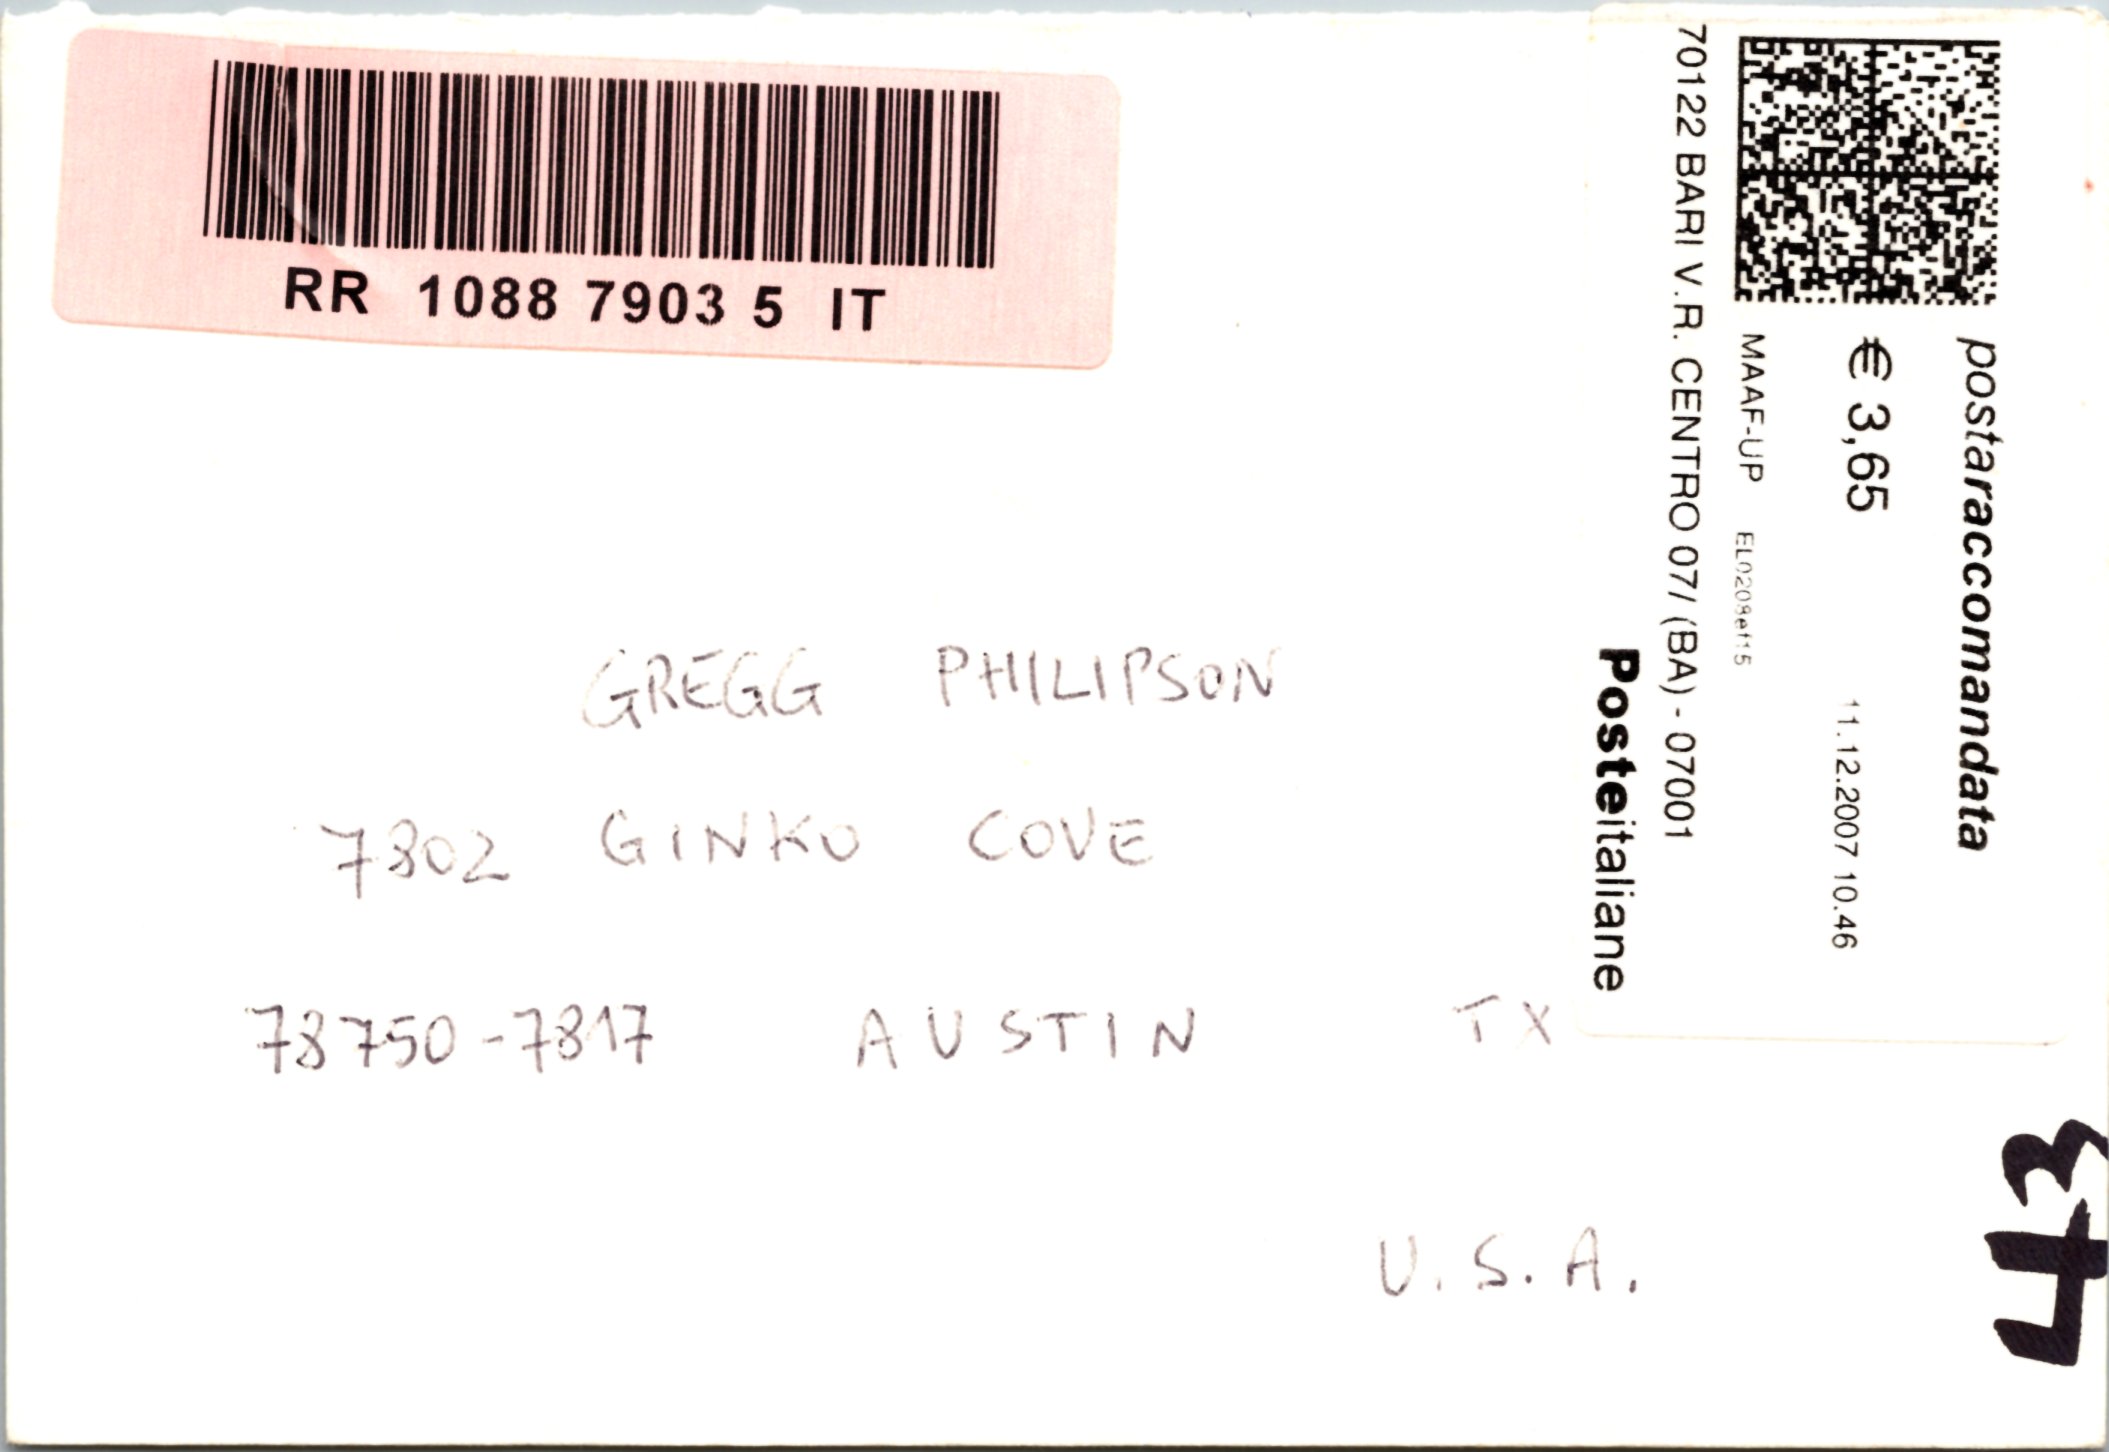 RR 1088 7903 5 IT
postaraccomandata
€ 3,65
11.12.2007 10.46
MAAF-UP
70122 BARI V.R. CENTRO 07/ (BA) - 07001
Posteitaliane
GREGG PHILIPSON
7802 GINKO COVE
78750-7817 AUSTIN TX
U.S.A.
43